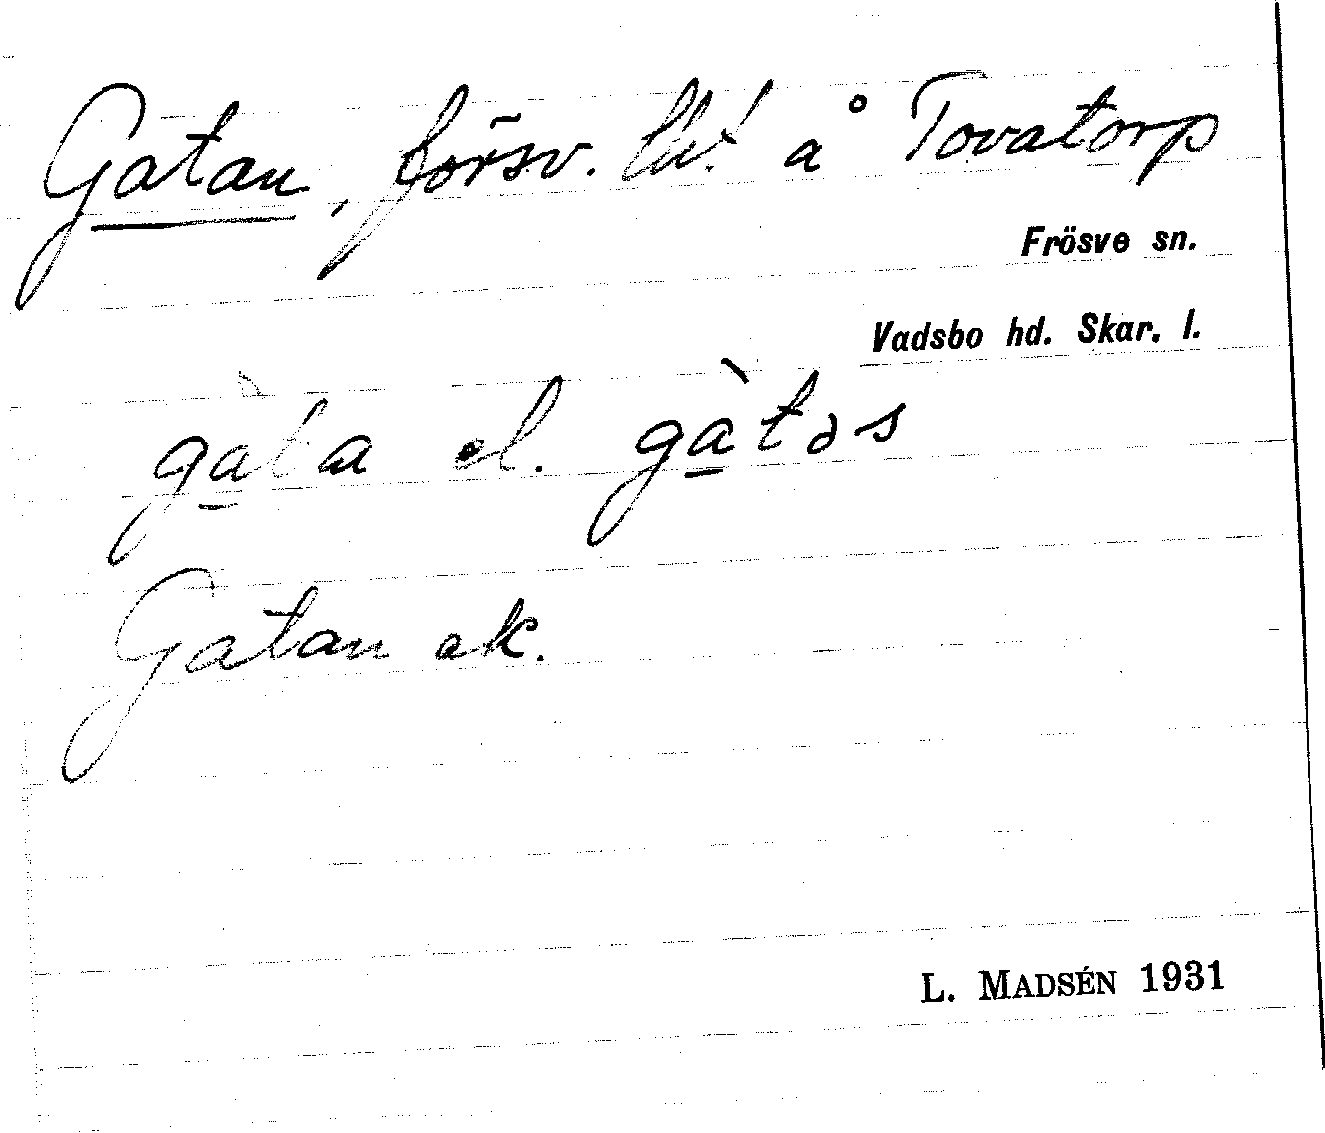 Gatan, försv. lht. å Tovatorp
Frösve sn.
Vadsbo hd. Skar. l.
gàta el. gàtəs
Gatan ek.
L. MADSÉN 1931